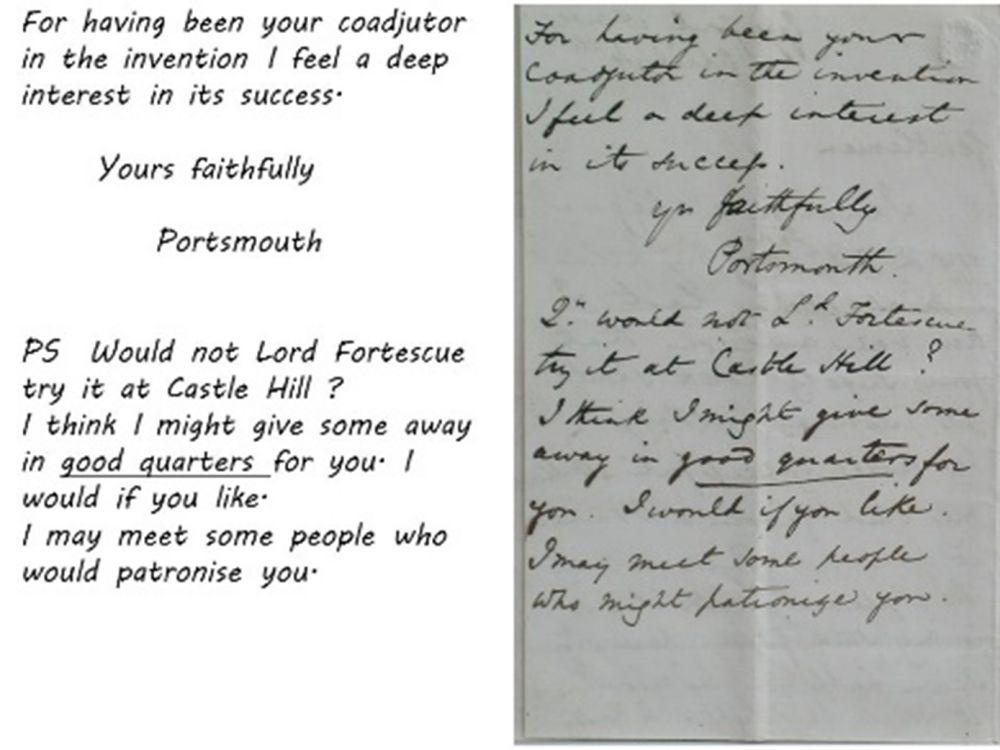 For having been your coadjutor
in the invention I feel a deep
interest in its success.
Yours faithfully
Portsmouth
PS Would not Lord Fortescue
try it at Castle Hill ?
I think I might give some away
in good quarters for you. I
would if you like.
I may meet some people who
would patronise you.
For having been your
coadjutor in the invention
I feel a deep interest
in its success.
yrs faithfully
Portsmouth.
would not Ld. Fortescue
try it at Castle Hill ?
I think I might give some
away in good quarters for
you. I would if you like.
I may meet some people
who might patronize you.